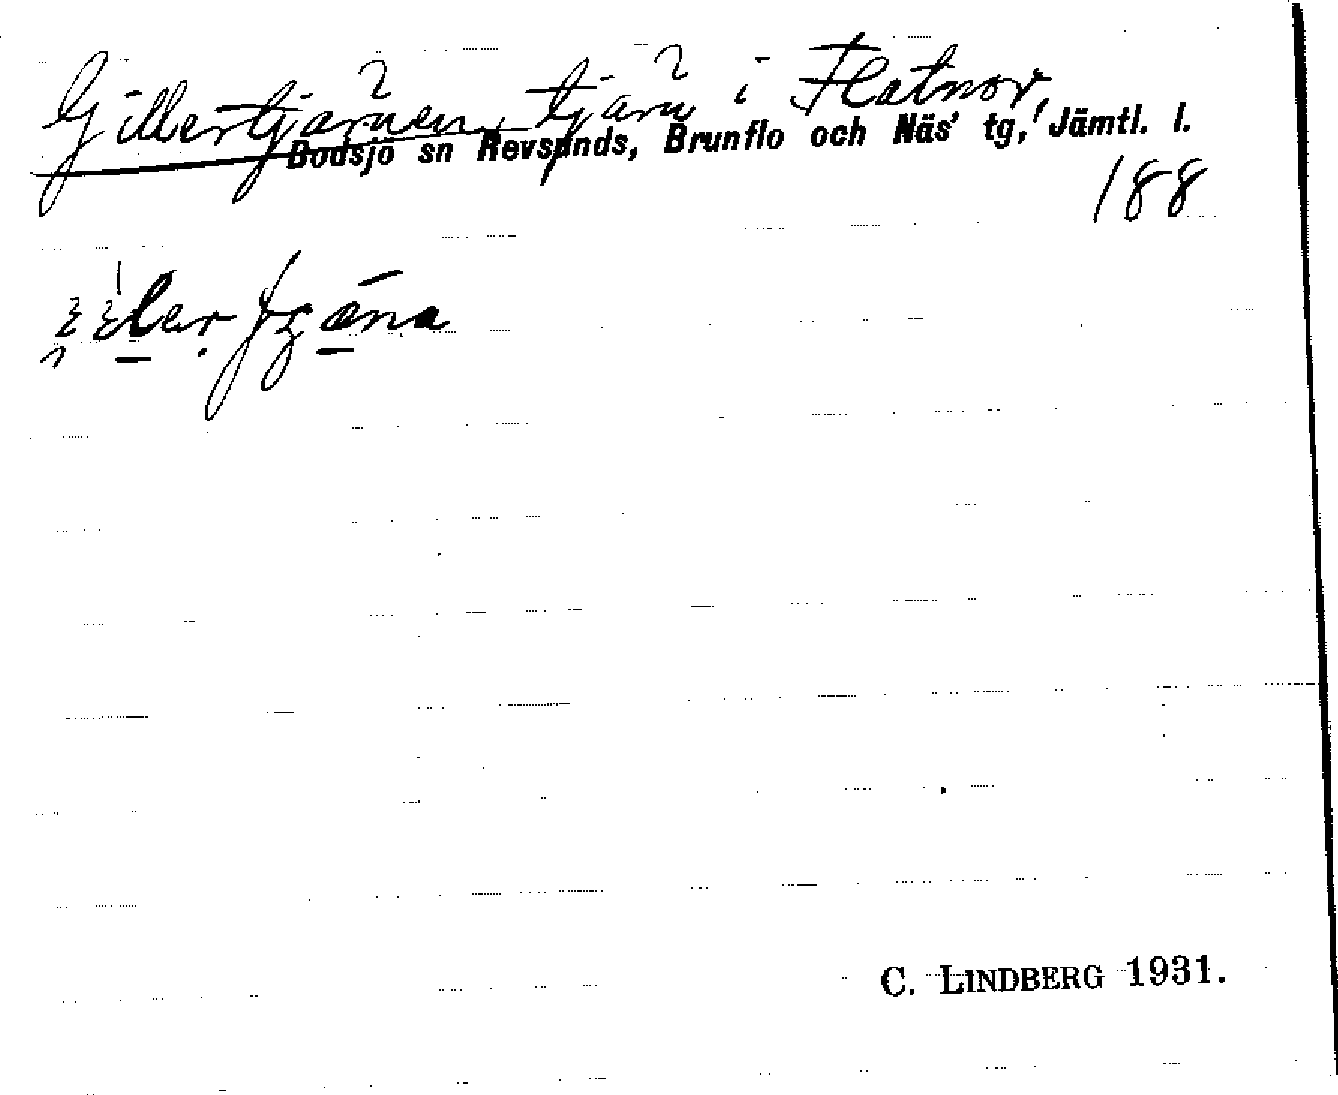 Gillertjärnen, tjärn i Flatnor,
Bodsjö sn Revsunds, Brunflo och Näs' tg, Jämtl. l.
188
C. LINDBERG 1931.